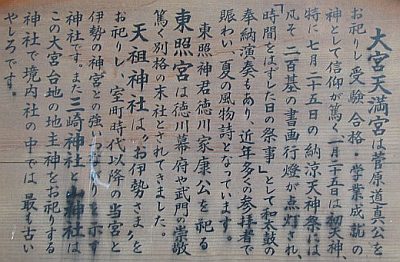 大宮天満宮は菅原道真公を
お祀りし受験合格・学業成就の
神として信仰が篤く、一月二十五日は初天神、
特に七月二十五日の納涼天神祭には
凡そ二百基の書画行燈が点灯され、
「時間をはずした日の祭事」として和太鼓の
奉納演奏もあり近年多くの参拝者で
賑わい、夏の風物詩となっています。
東照神君徳川家康公を祀る
東照宮は徳川幕府や武門の崇敬
篤く別格の末社とされてきました。
天祖神社は、"お伊勢さま"を
お祀りし、室町時代以降の当宮と
伊勢の神宮との強いつながりを示す
神社です。また三崎神社と山神社は
この大宮台地の地主神をお祀りする
神社で境内社の中では、最も古い
やしろです。